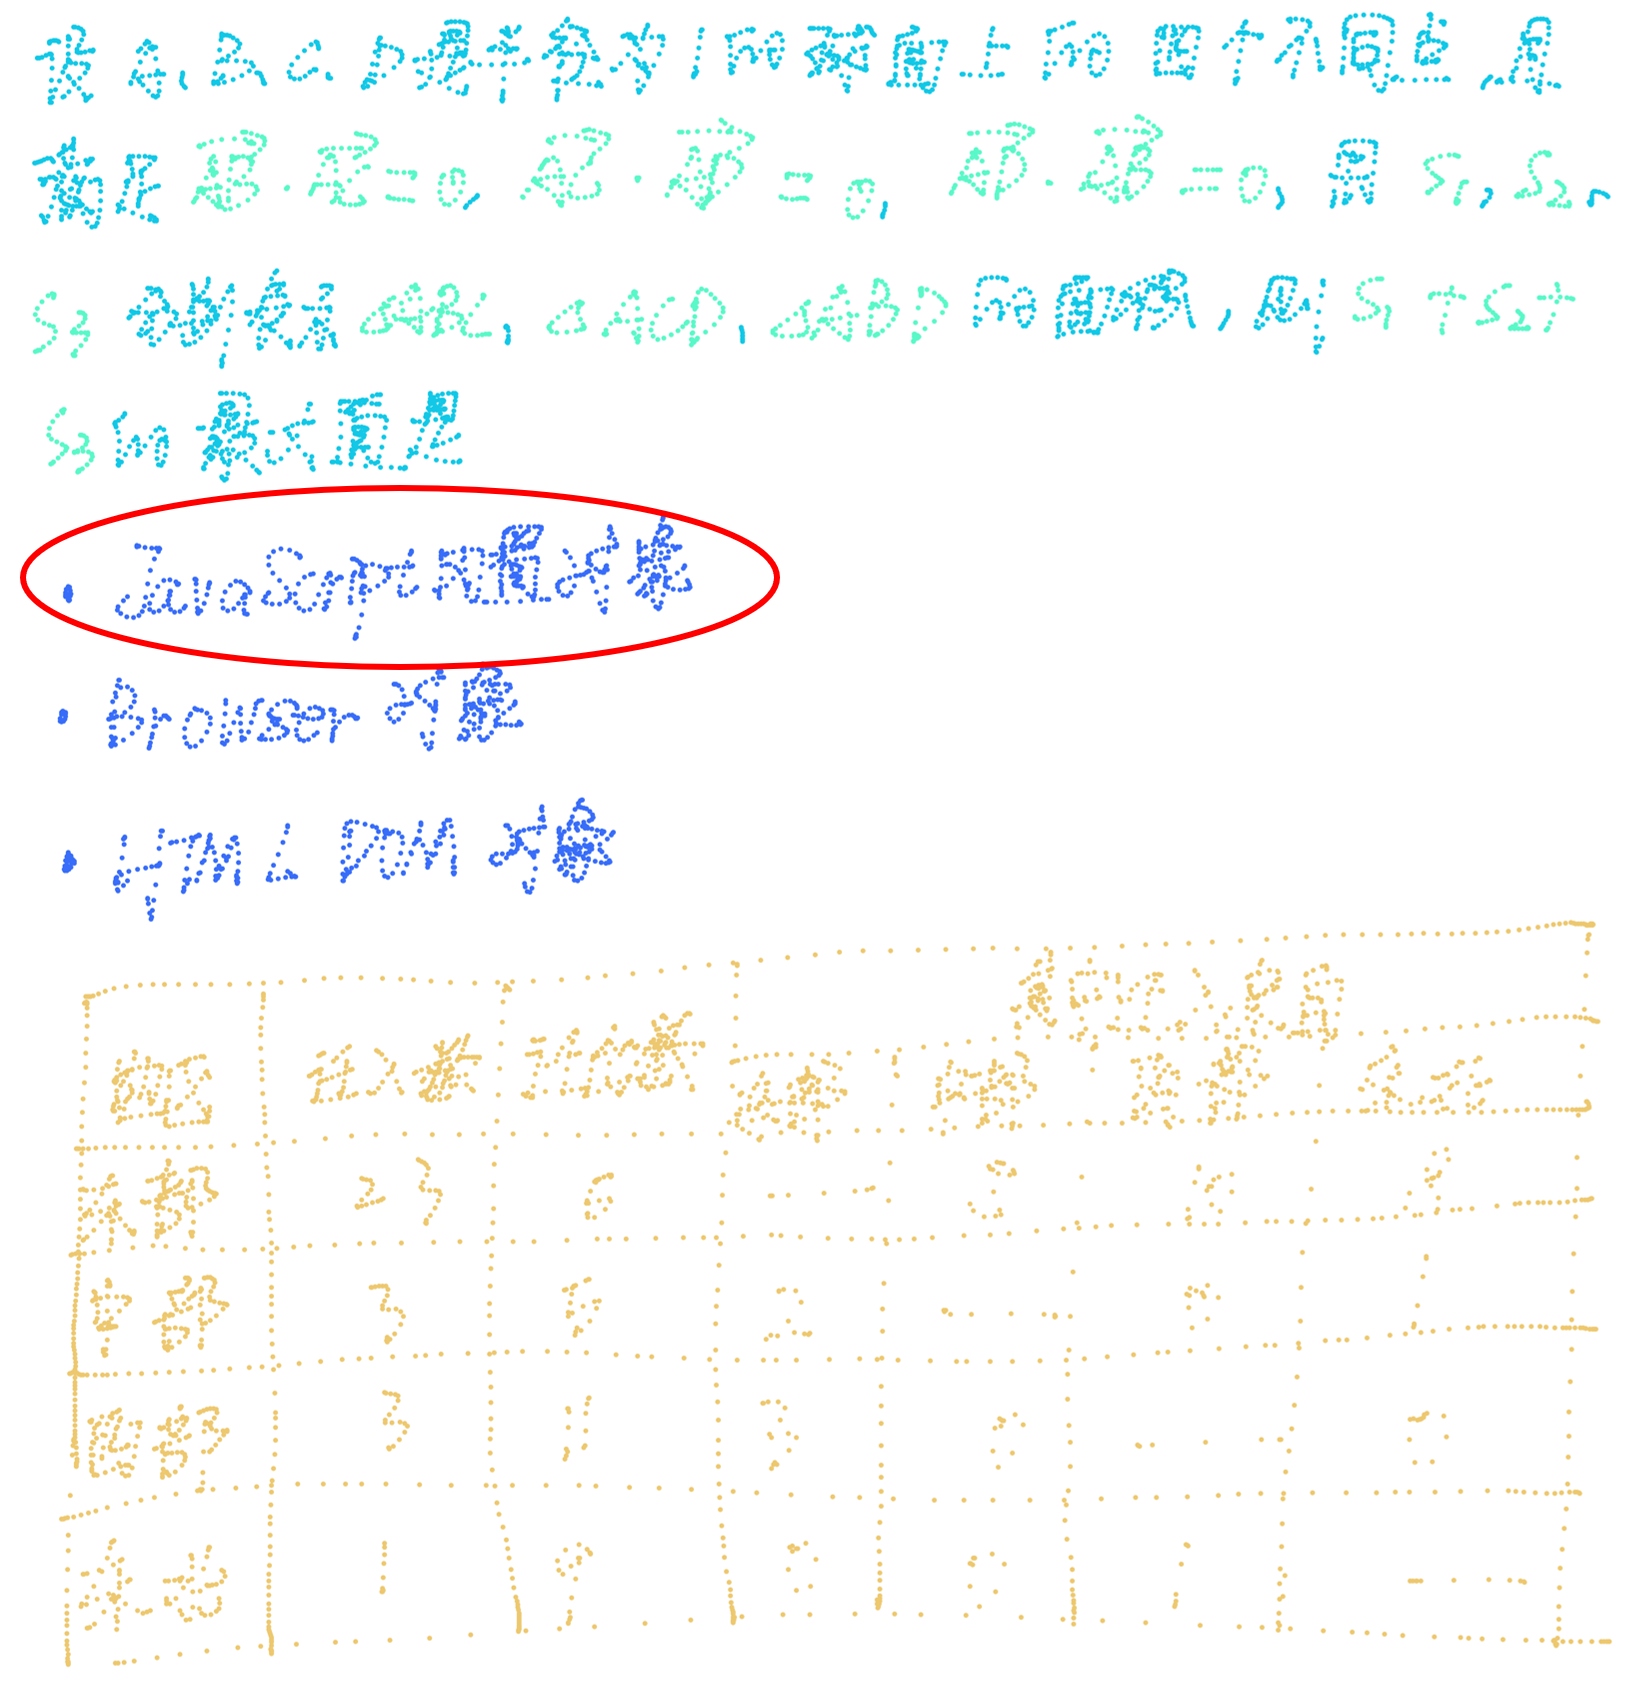 设 A、B C D 是半径为1的球面上的四个不同点,且
满足 AB·AC=0, AC·AD=0, AD·AB=0, 用 S1,S2,
S3 分别表示 △ABC, △ACD, △ABD 的面积,则 S1+S2+
S3 的最大值是
• JavaScript 内置对象
• Browser 对象
• HTML DOM 对象
地区
东部 23 6 —
中部 3 8 2 — 1
西部 3 11 3 0 — 0
东北 1 9 0 0 1 —